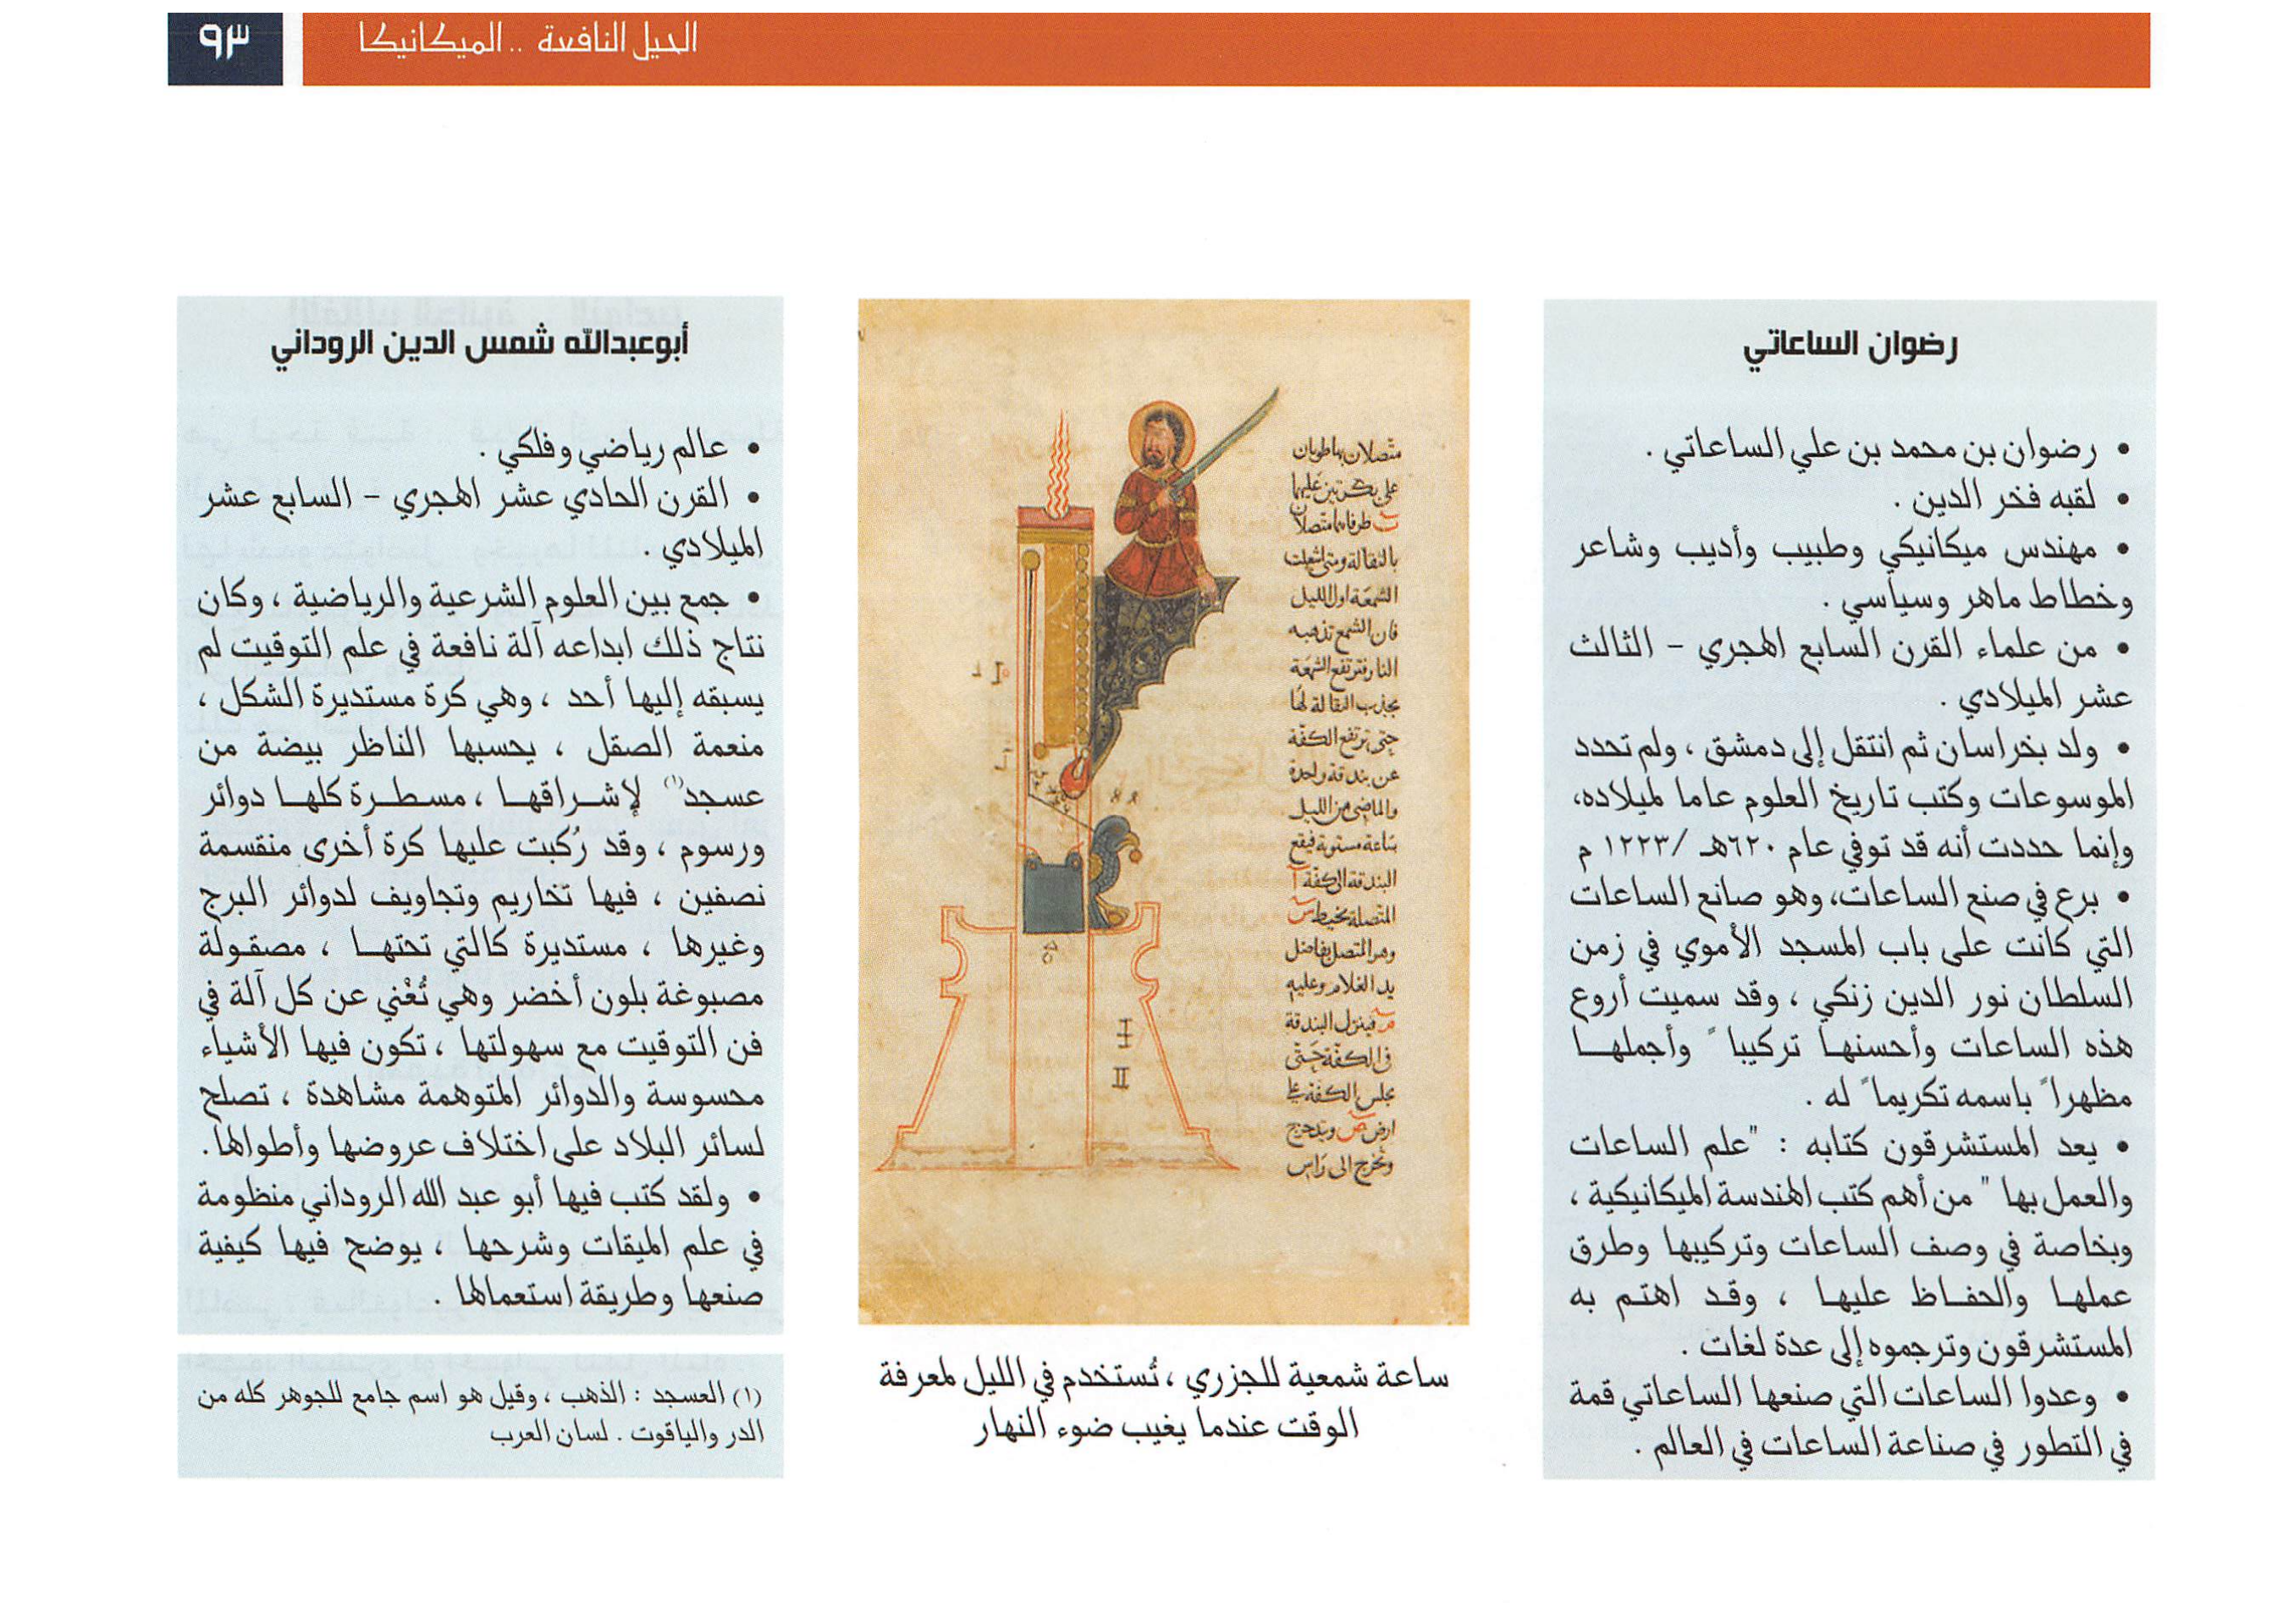 الحيل النافعة .. الميكانيكا
٩٣
رضوان الساعاتي
• رضوان بن محمد بن علي الساعاتي .
• لقبه فخر الدين .
• مهندس ميكانيكي وطبيب وأديب وشاعر
وخطاط ماهر وسياسي .
• من علماء القرن السابع الهجري – الثالث
عشر الميلادي .
• ولد بخراسان ثم انتقل إلى دمشق ، ولم تحدد
الموسوعات وكتب تاريخ العلوم عاما لميلاده،
وإنما حددت أنه قد توفي عام ٦٢٠هـ /١٢٢٣ م
• برع في صنع الساعات، وهو صانع الساعات
التي كانت على باب المسجد الأموي في زمن
السلطان نور الدين زنكي ، وقد سميت أروع
هذه الساعات وأحسنها تركيبا ً وأجملها
مظهرا ً باسمه تكريما ً له .
• يعد المستشرقون كتابه : "علم الساعات
والعمل بها " من أهم كتب الهندسة الميكانيكية ،
وبخاصة في وصف الساعات وتركيبها وطرق
عملها والحفاظ عليها ، وقد اهتم به
المستشرقون وترجموه إلى عدة لغات .
• وعدوا الساعات التي صنعها الساعاتي قمة
في التطور في صناعة الساعات في العالم .
متصلان بها طويان
على بكرتين عليهما
طرفاهما متصلان
بالثقالة ومتى اشعلت
الشمعة اول الليل
فان الشمع تذهبه
النار فترتفع الشمعة
بجذب الثقالة لها
حتى ترتفع الكفة
عن بندقة واحدة
والماضى من الليل
ساعة مستوية فيقع
البندقة الى كفة آ
المتصلة بخيط س
وهو المتصل بفاضل
يد الغلام وعليه
فينزل البندقة
فى الكفة حتى
يجلس الكفة على
ارض ص ويتدحرج
وتخرج الى راس
ساعة شمعية للجزري ، تُستخدم في الليل لمعرفة
الوقت عندما يغيب ضوء النهار
أبوعبدالله شمس الدين الروداني
• عالم رياضي وفلكي .
• القرن الحادي عشر الهجري – السابع عشر
الميلادي .
• جمع بين العلوم الشرعية والرياضية ، وكان
نتاج ذلك ابداعه آلة نافعة في علم التوقيت لم
يسبقه إليها أحد ، وهي كرة مستديرة الشكل ،
منعمة الصقل ، يحسبها الناظر بيضة من
عسجد(١) لإشراقها ، مسطرة كلها دوائر
ورسوم ، وقد رُكبت عليها كرة أخرى منقسمة
نصفين ، فيها تخاريم وتجاويف لدوائر البرج
وغيرها ، مستديرة كالتي تحتها ، مصقولة
مصبوغة بلون أخضر وهي تُغْني عن كل آلة في
فن التوقيت مع سهولتها ، تكون فيها الأشياء
محسوسة والدوائر المتوهمة مشاهدة ، تصلح
لسائر البلاد على اختلاف عروضها وأطوالها.
• ولقد كتب فيها أبو عبد الله الروداني منظومة
في علم الميقات وشرحها ، يوضح فيها كيفية
صنعها وطريقة استعمالها .
(١) العسجد : الذهب ، وقيل هو اسم جامع للجوهر كله من
الدر والياقوت . لسان العرب